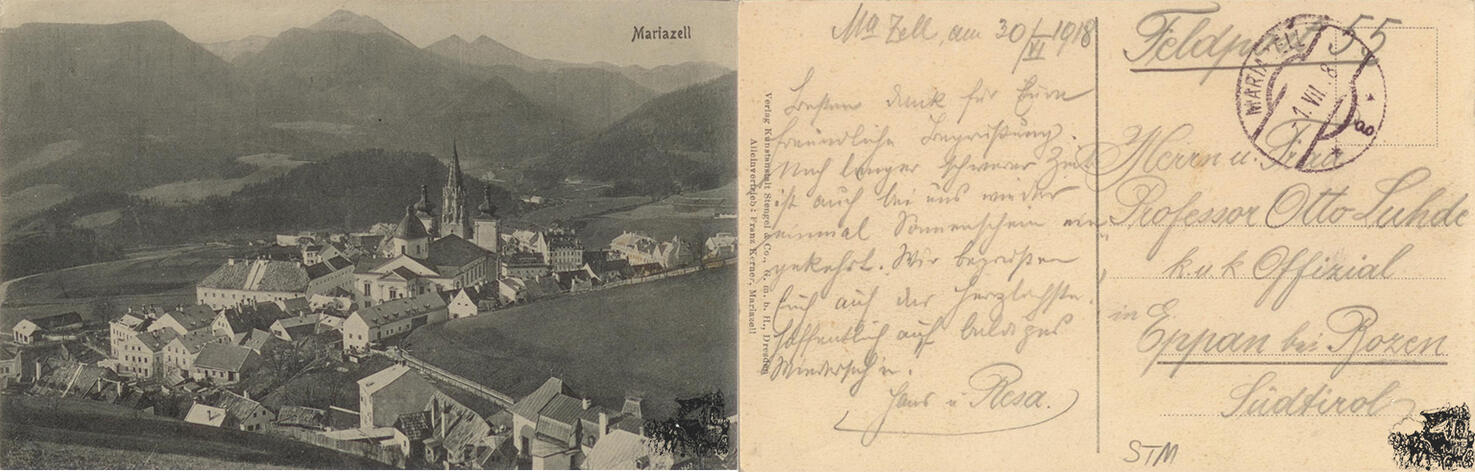 Mariazell
Ma Zell, am 30/VI 1918
Besten Dank für Eure
freundliche Begrüßung.
Nach langer schwerer Zeit
ist auch bei uns wieder
einmal Sonnenschein ein-
gekehrt. Wir begrüßen
Euch auf das herzlichste.
Hoffentlich auf baldiges
Wiedersehn.
Hans u Resa.
Verlag Kunstanstalt Stengel & Co., G. m. b. H., Dresden
Alleinvertrieb: Franz Kerner, Mariazell
Feldpost 55
MARIAZELL
1. VII 18
Herrn u. Frau
Professor Otto Luhde
k u k Offizial
in Eppan bei Bozen
Südtirol
STM